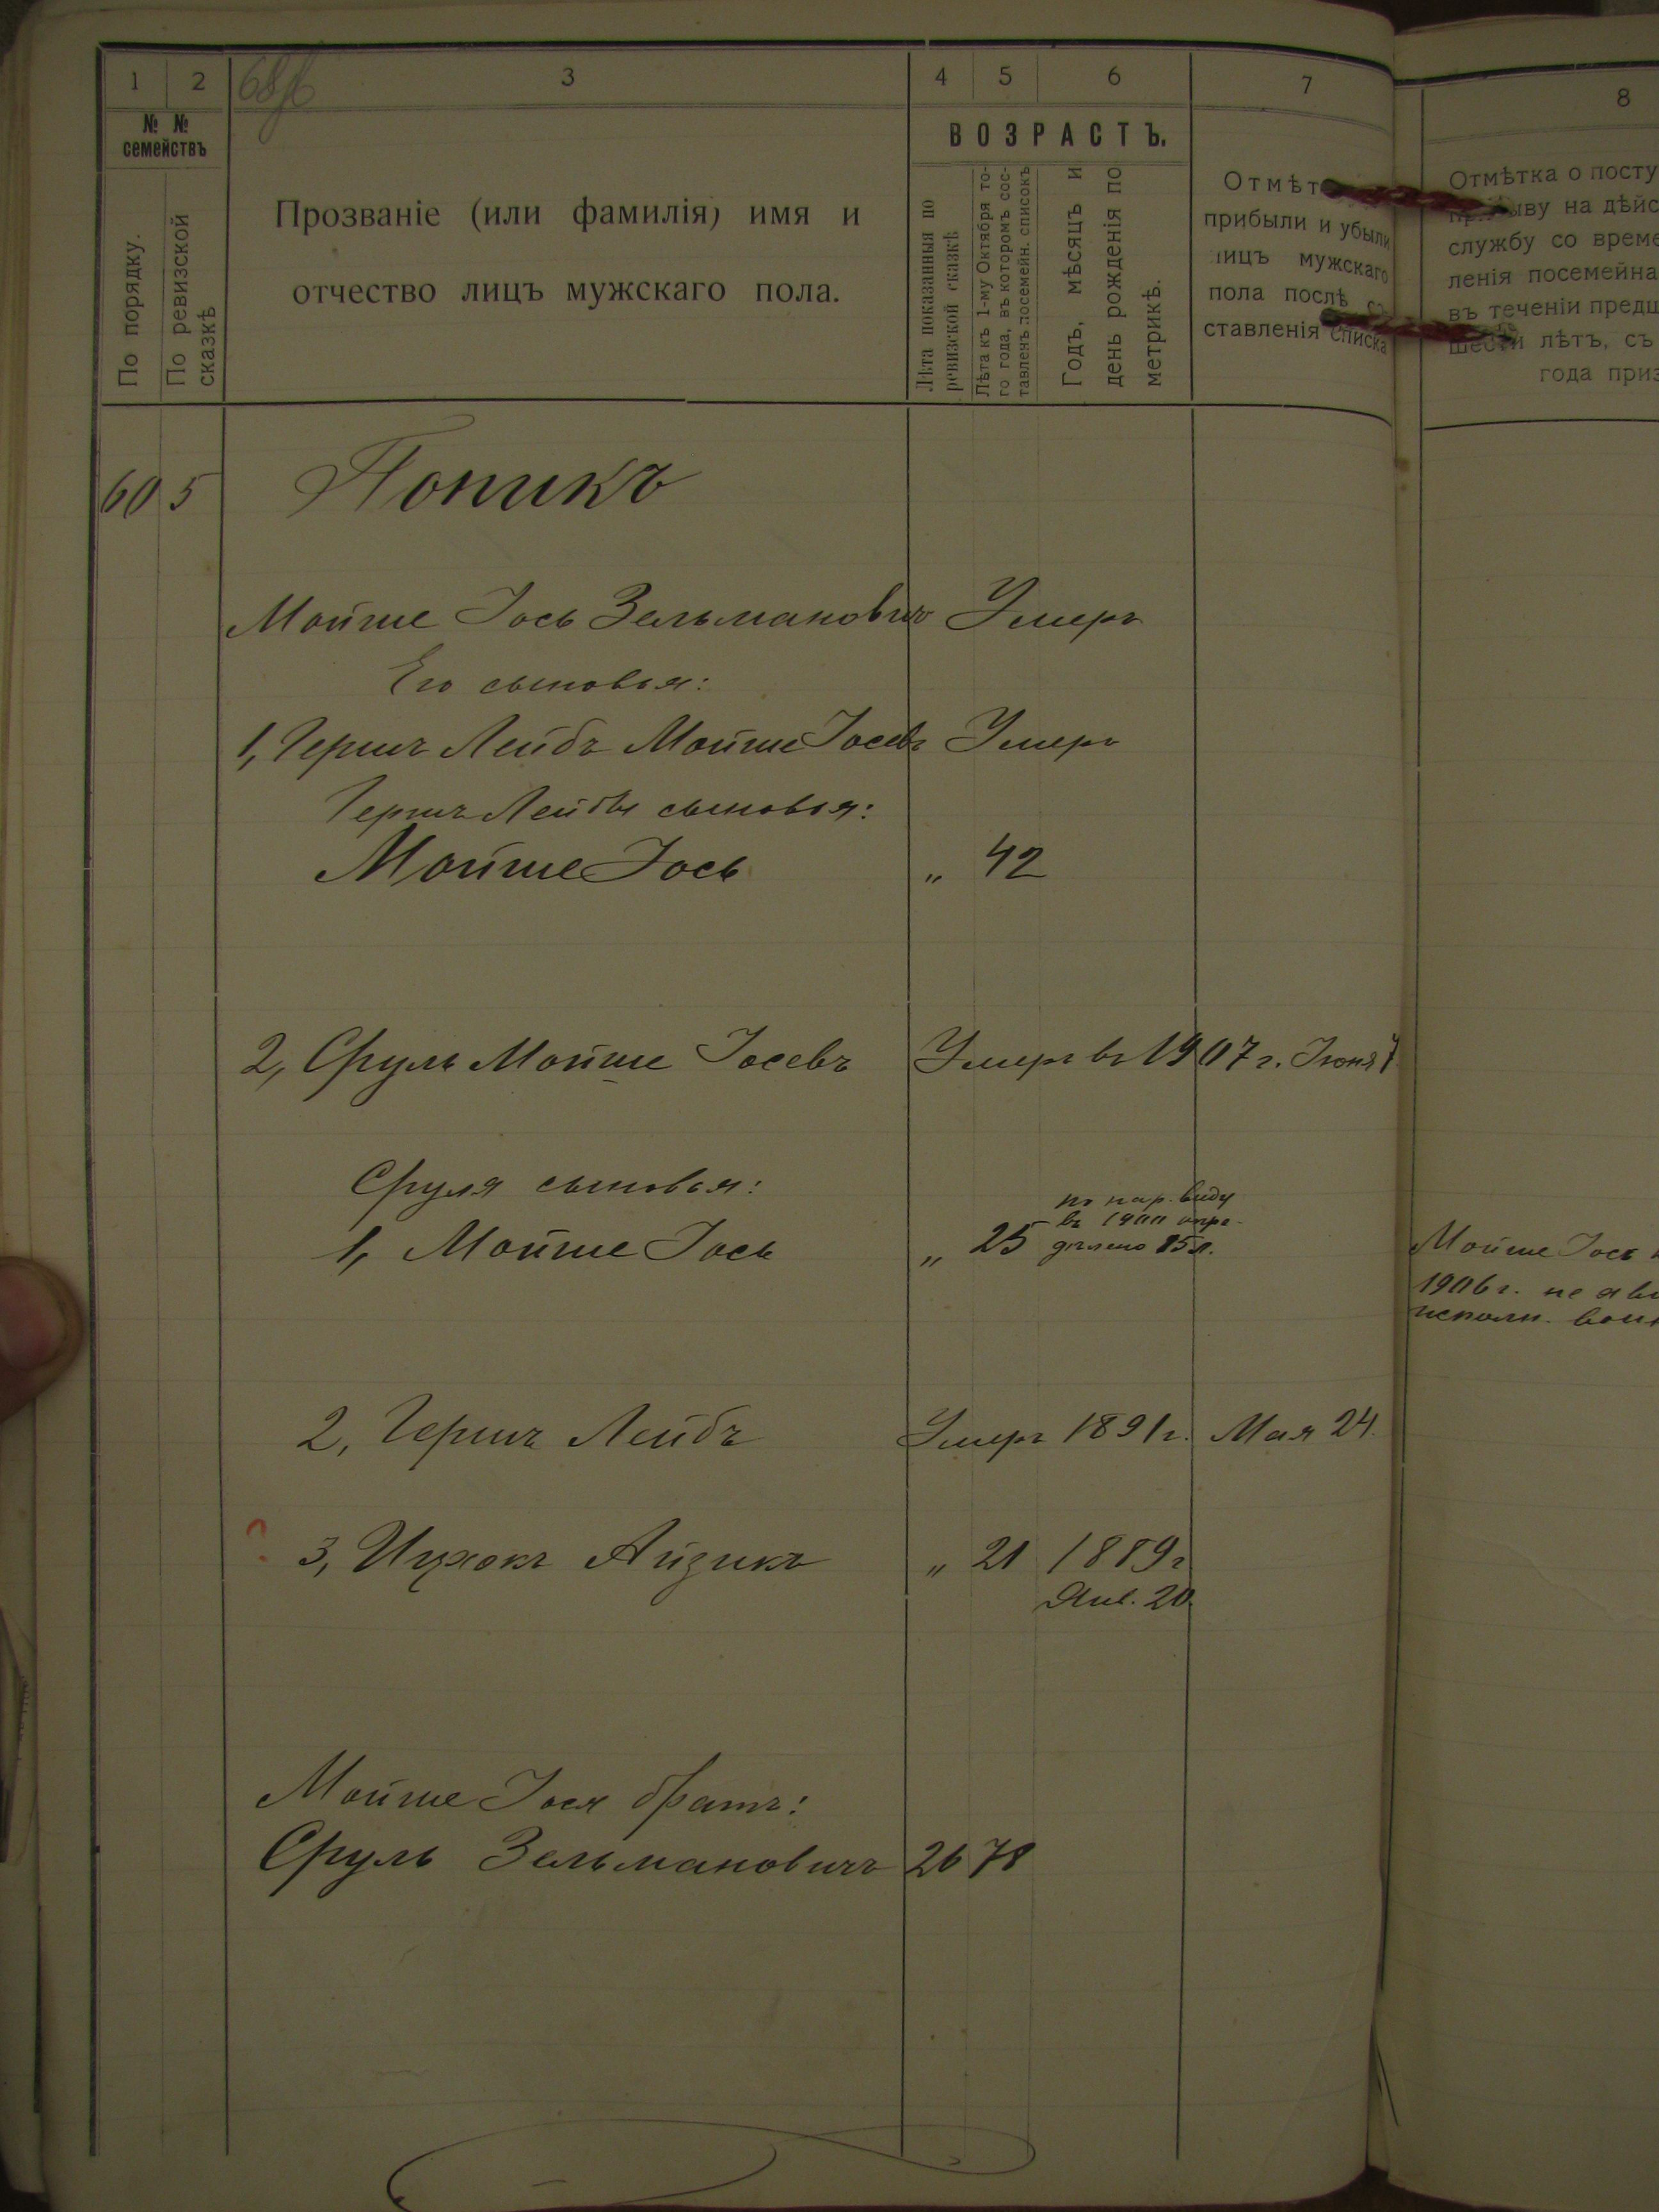 1 2 3 4 5 6 7 8
№ № семействъ
По порядку.
По ревизской сказкѣ
Прозваніе (или фамилія) имя и
отчество лицъ мужскаго пола.
ВОЗРАСТЪ.
Лѣта показанныя по
ревизской сказкѣ
Лѣта къ 1-му Октября то-
го года, въ которомъ сос-
тавленъ посемейн. списокъ
Годъ, мѣсяцъ и
день рожденія по
метрикѣ.
прибыли и убыли
лицъ мужскаго
пола послѣ
ставленія списка
Отмѣтка о посту
на дѣйс
службу со време
ленія посемейна
въ теченіи предш
шести лѣтъ, съ
года приз
60 5 Попикъ
Мойше Іось Зельмановичъ Умеръ
Его сыновья:
1, Гершъ Лейбъ Мойше Іосевъ Умеръ
Гершъ Лейбы сыновья:
Мойше Іось „ 42
2, Сруль Мойше Іосевъ Умеръ въ 1907 г. Іюня
Сруля сыновья:
по нар. виду
въ 1900 опре-
1, Мойше Іось „ 25 дѣлено 15 л.
Мойше Іось
1906 г. не яви
исполн. воин
2, Гершъ Лейбъ Умеръ 1891 г. Мая 24.
? 3, Ицхокъ Айзикъ „ 21 1889 г
Янв. 20.
Мойше Іося братъ:
Сруль Зельмановичъ 26 78